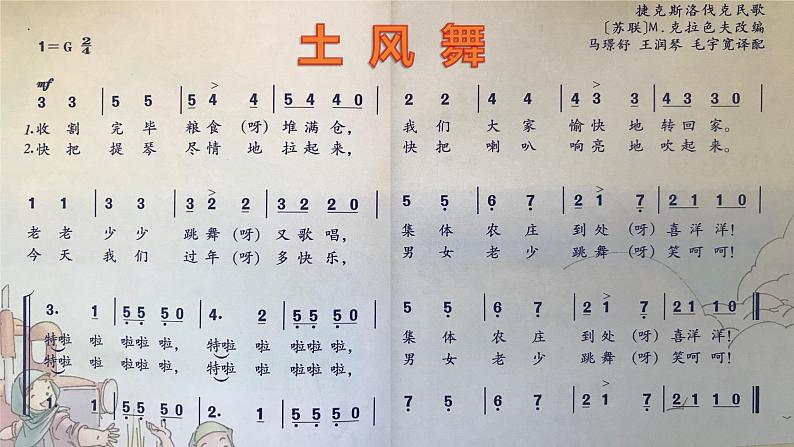 土风舞
捷克斯洛伐克民歌
〔苏联〕M.克拉色夫改编
马璟舒 王润琴 毛宇宽译配
1=G 2/4
mf
3 3 | 5 5 | 5 4 4 | 5 4 4 0 | 2 2 | 4 4 | 4 3 3 | 4 3 3 0 |
1.收 割 完 毕 粮食 (呀) 堆 满 仓, 我 们 大 家 愉快 地 转回 家。
2.快 把 提 琴 尽情 地 拉起 来, 快 把 喇 叭 响亮 地 吹起 来。
1 1 | 3 3 | 3 2 2 | 3 2 2 0 | 5 5 | 6 7 | 2 1 7 | 2 1 1 0 |
老 老 少 少 跳舞 (呀) 又 歌 唱, 集 体 农 庄 到处 (呀) 喜 洋 洋!
今 天 我 们 过年 (呀) 多 快 乐, 男 女 老 少 跳舞 (呀) 笑 呵 呵!
3. 1 | 5 5 5 0 | 4. 2 | 5 5 5 0 | 5 5 | 6 7 | 2 1 7 | 2 1 1 0 |
特啦 啦 啦 啦 啦, 特啦 啦 啦 啦 啦, 集 体 农 庄 到处 (呀) 喜 洋 洋!
特啦 啦 啦 啦 啦, 特啦 啦 啦 啦 啦, 男 女 老 少 跳舞 (呀) 笑 呵 呵!
1. 1 | 5 5 5 0 | 2. 1 | 5 5 5 0 | 5 5 | 6 7 | 2 1 7 | 2 1 1 0